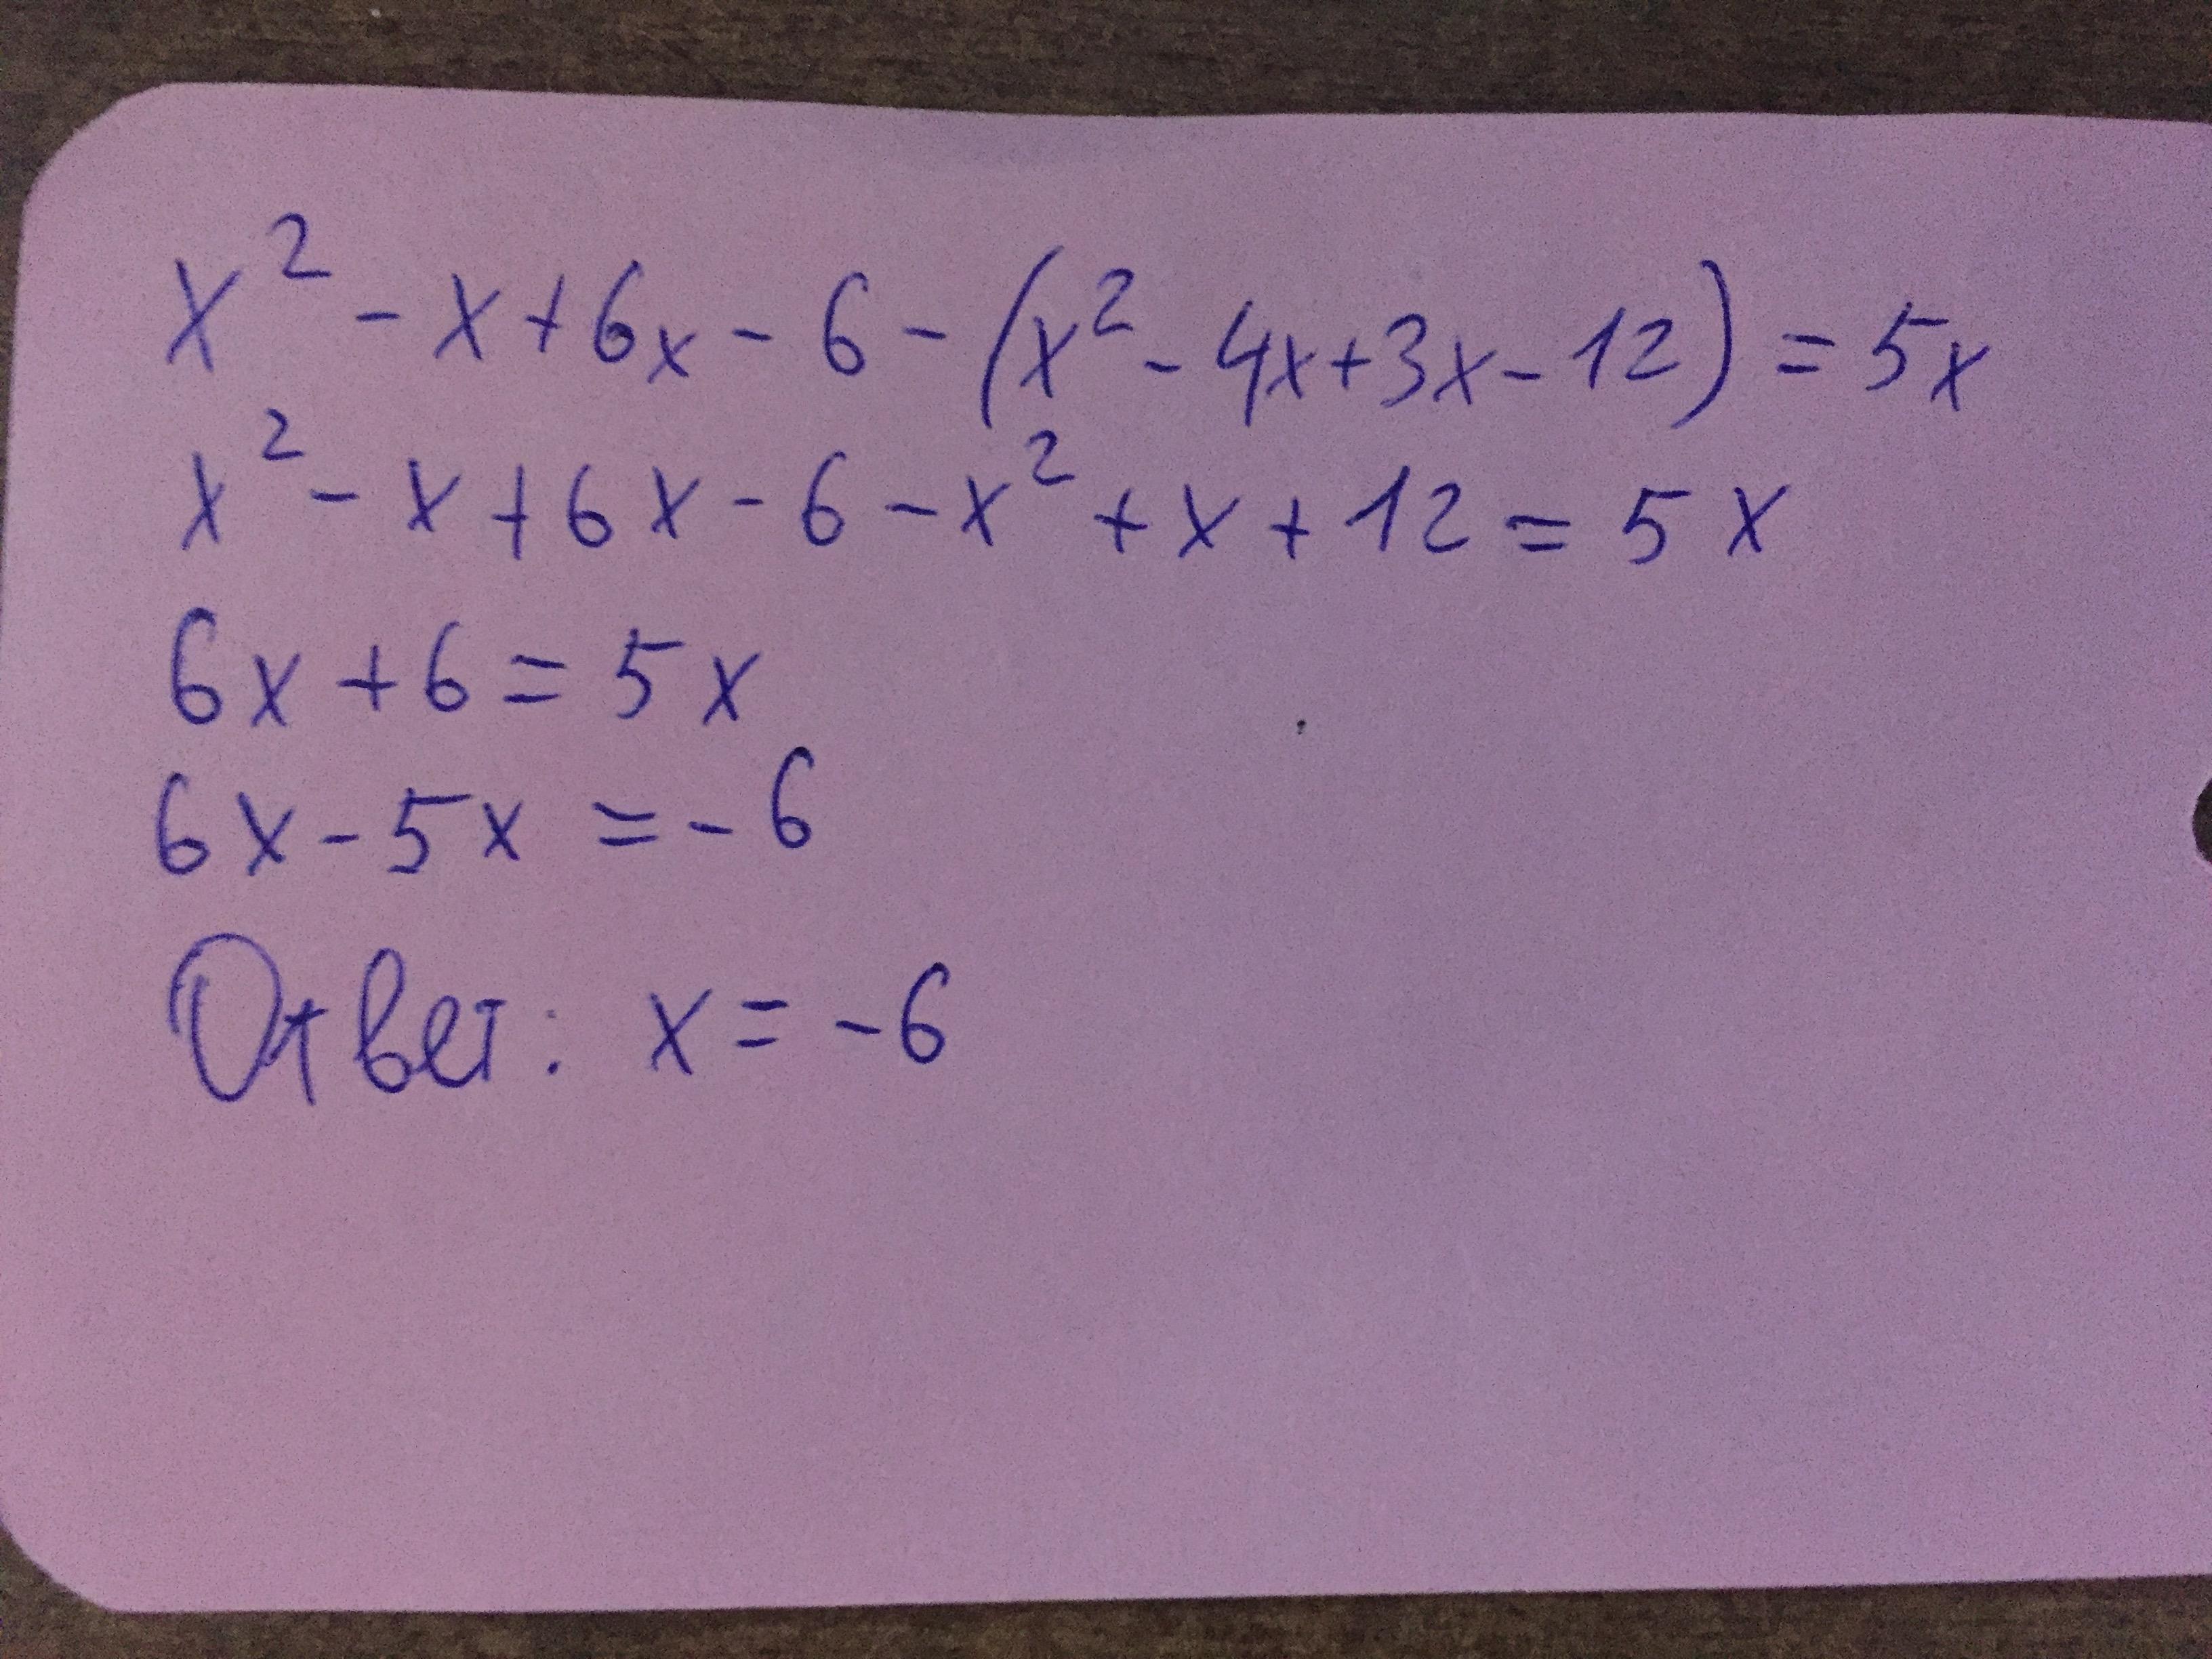 x² - x + 6x - 6 - (x² - 4x + 3x - 12) = 5x
x² - x + 6x - 6 - x² + x + 12 = 5x
6x + 6 = 5x
6x - 5x = -6
Ответ: x = -6